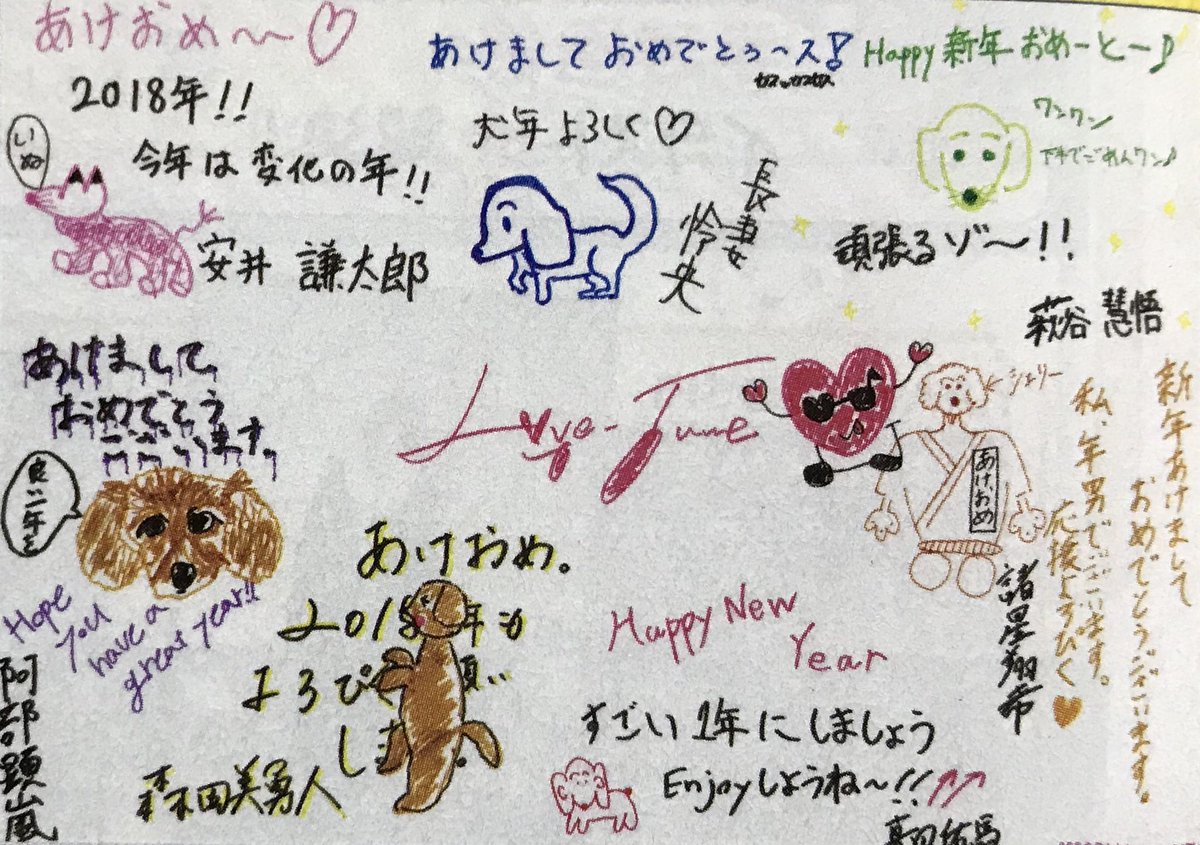 あけおめ〜〜♡
2018年!!
今年は変化の年!!
いぬ
安井 謙太郎
あけまして おめでとぅ〜ス!
犬年よろしく♡
長妻
怜央
Happy 新年 おめーとー♪
ワンワン
下手でごめんワン♪
頑張るゾ〜!!
萩谷 慧悟
あけまして
おめでとう
ございます。
良い年を
Hope
you
have a
great year!!
阿部顕嵐
Love-tune
シェリー
あけおめ
新年あけまして
おめでとうございます。
私、年男でございます。
応援よろぴく♥
諸星翔希
あけおめ。
2018年も
よろぴく
森田美勇人
Happy New
Year
すごい1年にしましょう
Enjoyしようね〜!!
真田佑馬